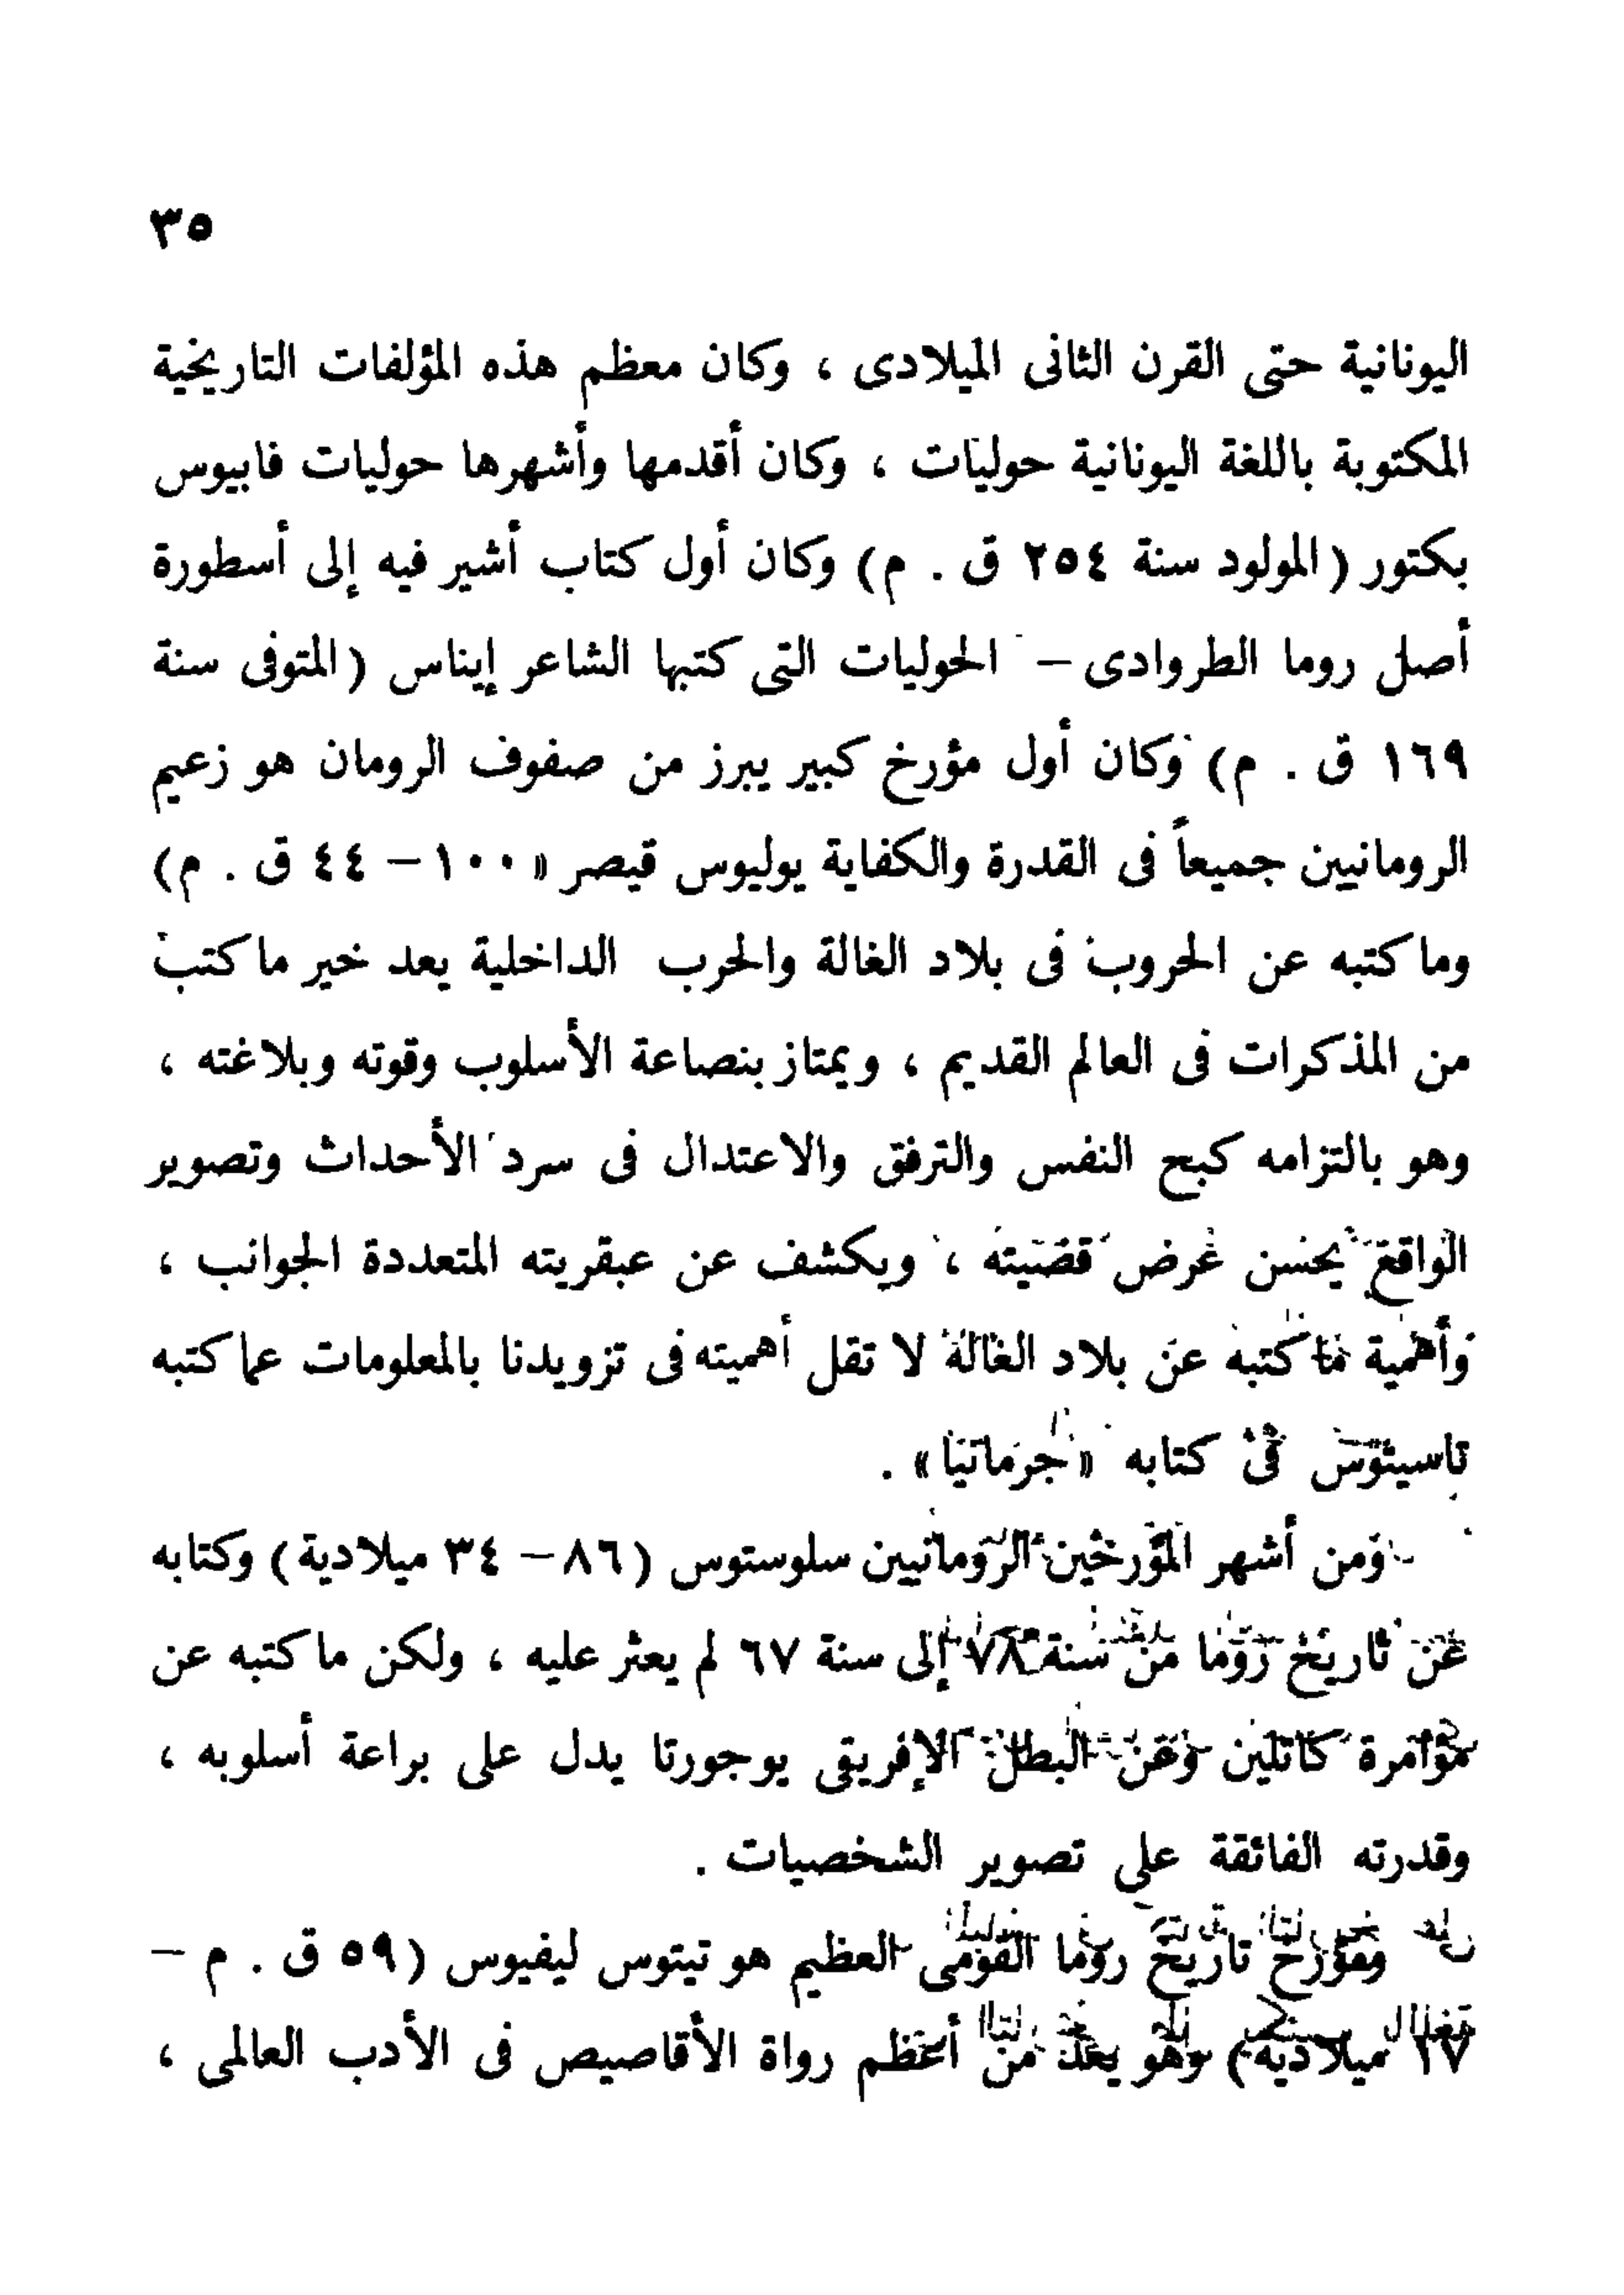 ٣٥
اليونانية حتى القرن الثانى الميلادى ، وكان معظم هذه المؤلفات التاريخية
المكتوبة باللغة اليونانية حوليات ، وكان أقدمها وأشهرها حوليات فابيوس
بكتور (المولود سنة ٢٥٤ ق . م) وكان أول كتاب أشير فيه إلى أسطورة
أصل روما الطروادى – الحوليات التى كتبها الشاعر إيناس (المتوفى سنة
١٦٩ ق . م) وكان أول مؤرخ كبير يبرز من صفوف الرومان هو زعيم
الرومانيين جميعاً فى القدرة والكفاية يوليوس قيصر « ١٠٠ – ٤٤ ق . م)
وما كتبه عن الحروب فى بلاد الغالة والحرب الداخلية يعد خير ما كتب
من المذكرات فى العالم القديم ، ويمتاز بنصاعة الأسلوب وقوته وبلاغته ،
وهو بالتزامه كبح النفس والترفق والاعتدال فى سرد الأحداث وتصوير
الواقع يحسن عرض قضيته ، ويكشف عن عبقريته المتعددة الجوانب ،
وأهمية ما كتبه عن بلاد الغالة لا تقل أهميته فى تزويدنا بالمعلومات عما كتبه
تاسيتوس فى كتابه « جرمانيا » .
ومن أشهر المؤرخين الرومانيين سلوستوس (٨٦ – ٣٤ ميلادية) وكتابه
عن تاريخ روما من سنة ٧٨ إلى سنة ٦٧ لم يعثر عليه ، ولكن ما كتبه عن
مؤامرة كاتلين وعن البطل الإفريقى يوجورتا يدل على براعة أسلوبه ،
وقدرته الفائقة على تصوير الشخصيات .
ومؤرخ تاريخ روما القومى العظيم هو تيتوس ليفيوس (٥٩ ق . م –
١٧ ميلادية) وهو يعد من أعظم رواة الأقاصيص فى الأدب العالمى ،